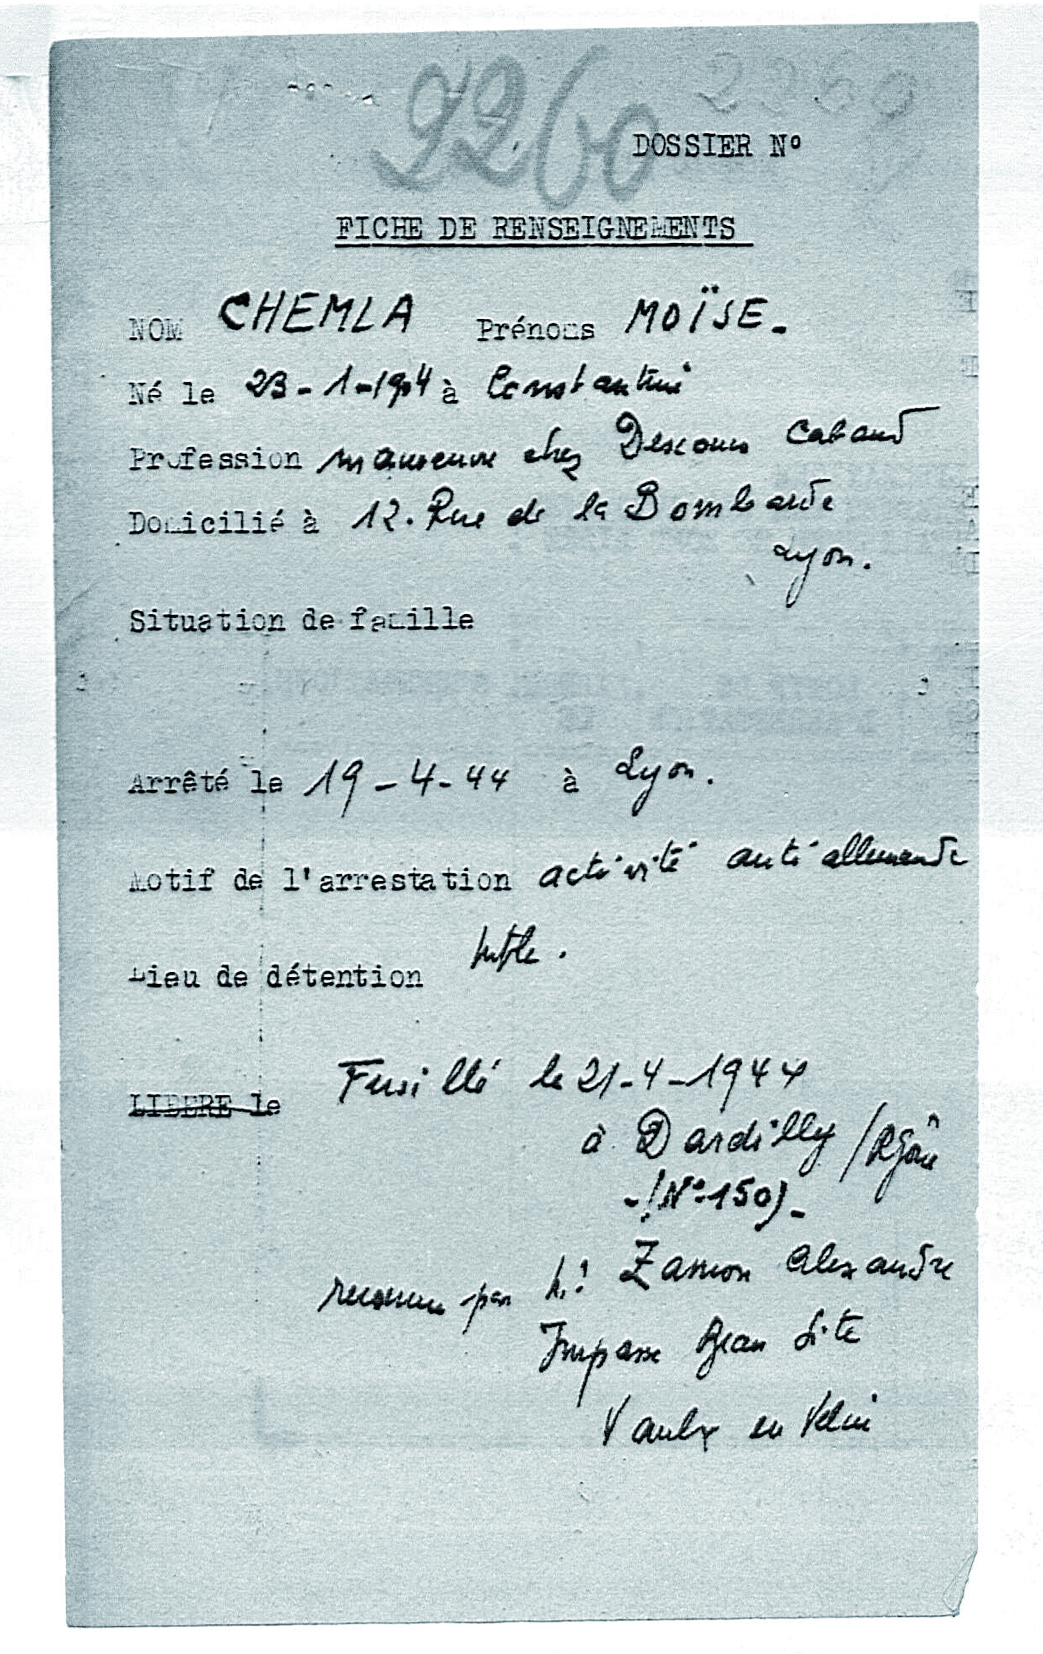 2260 2269
DOSSIER Nº
FICHE DE RENSEIGNEMENTS
NOM CHEMLA Prénoms MOÏSE.
Né le 23-1-1904 à Constantine
Profession manoeuvre chez Descours Cabaud
Domicilié à 12. Rue de la Bombarde
Lyon.
Situation de famille
Arrêté le 19-4-44 à Lyon.
Motif de l'arrestation activité anti allemande
Lieu de détention
LIBERE le Fusillé le 21-4-1944
à Dardilly /Rhône
-(Nº 150)-
reconnu par Alexandre
Impasse Beau Site
Vaulx en Velin